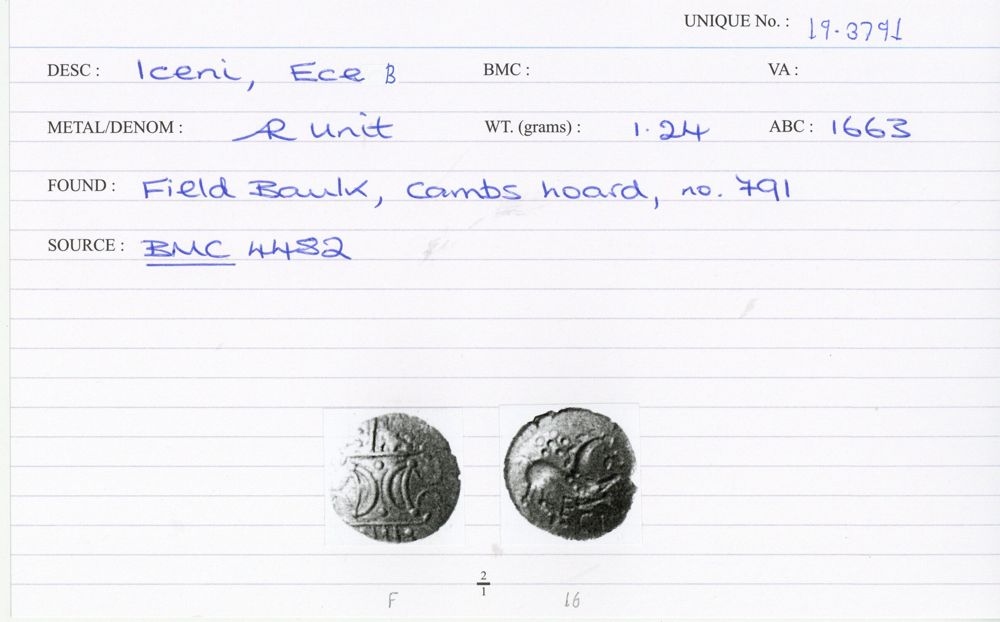 UNIQUE No. : 19.3791
DESC : Iceni, Ece B BMC : VA :
METAL/DENOM : AR Unit WT. (grams) : 1.24 ABC : 1663
FOUND : Field Baulk, Cambs hoard, no. 791
SOURCE : BMC 4482
2
1
F 16